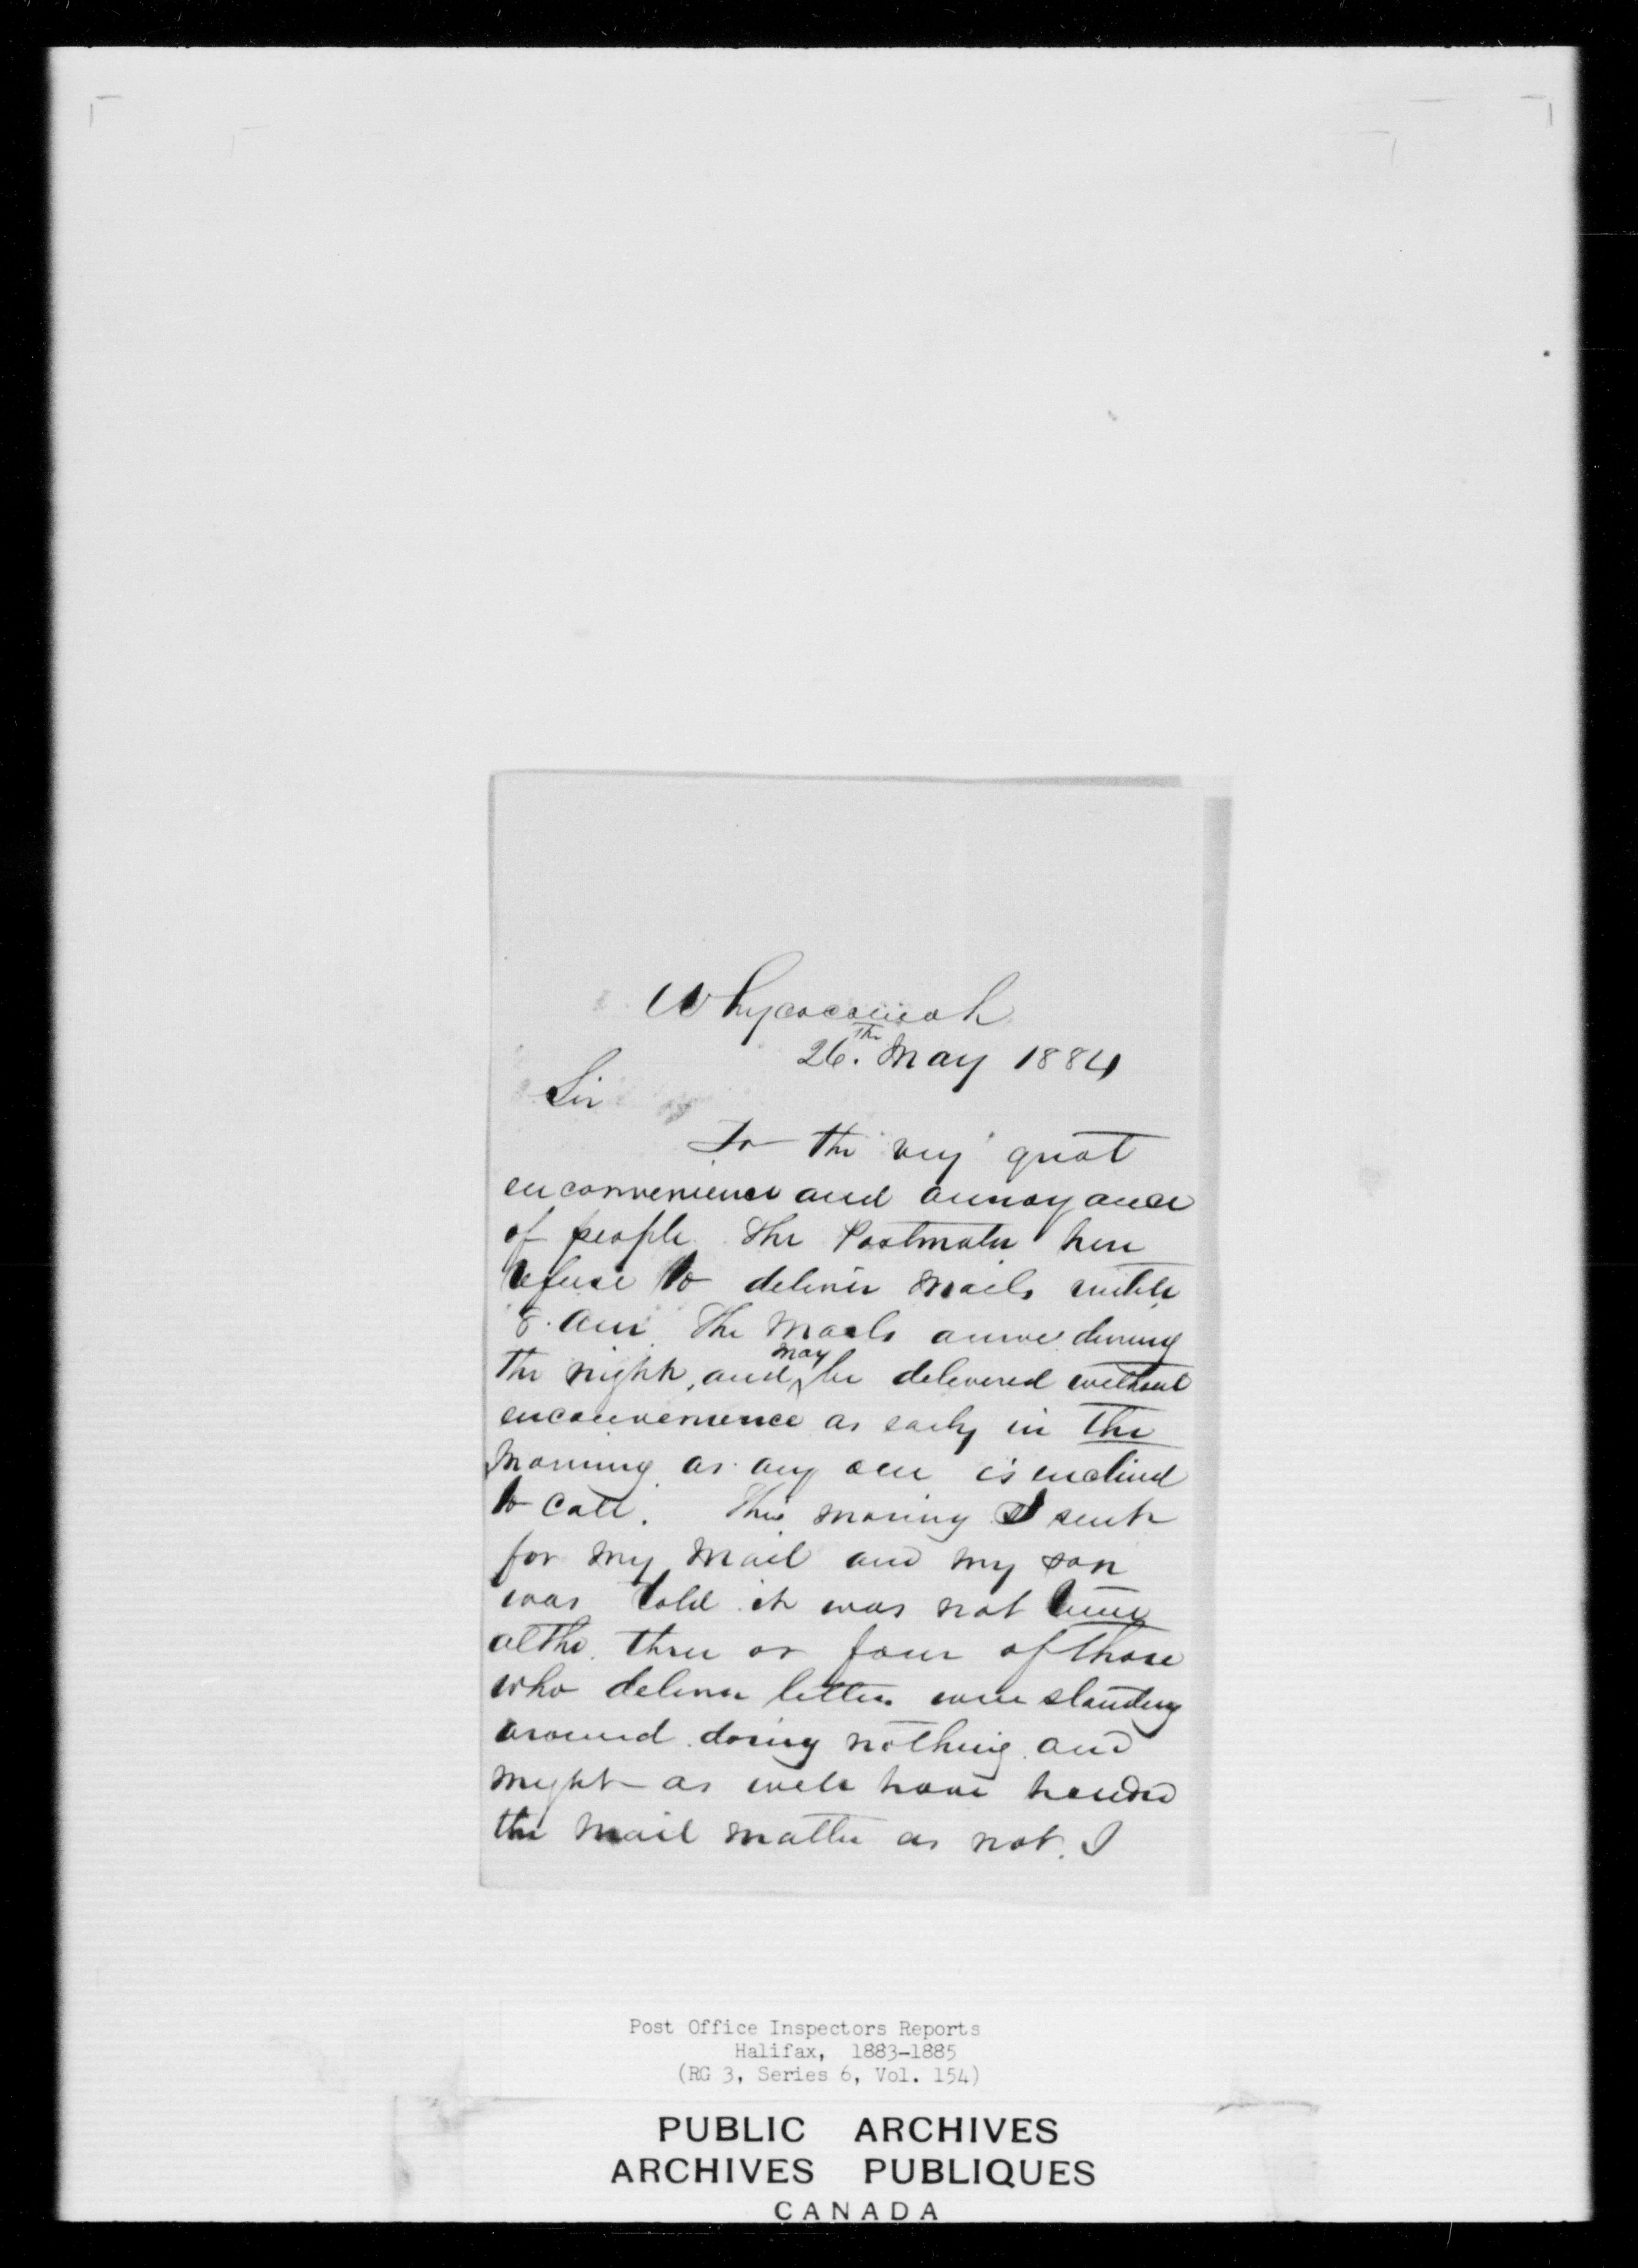 Whycocomah
26.th May 1884
Sir
To the very great
enconvenience and annoyance
of people the Postmater here
refuse to deliver mails untill
8. am. The mails arrive during
the night, and may be delivered without
enconvenience as early in the
morning as any one is enclined
to call. This moring I sent
for my mail and my son
was told it was not time
altho. three or four of those
who deliver letters were standing
around doing nothing and
might as well have handed
the mail matter as not. I
Post Office Inspectors Reports
Halifax, 1883-1885
(RG 3, Series 6, Vol. 154)
PUBLIC ARCHIVES
ARCHIVES PUBLIQUES
CANADA